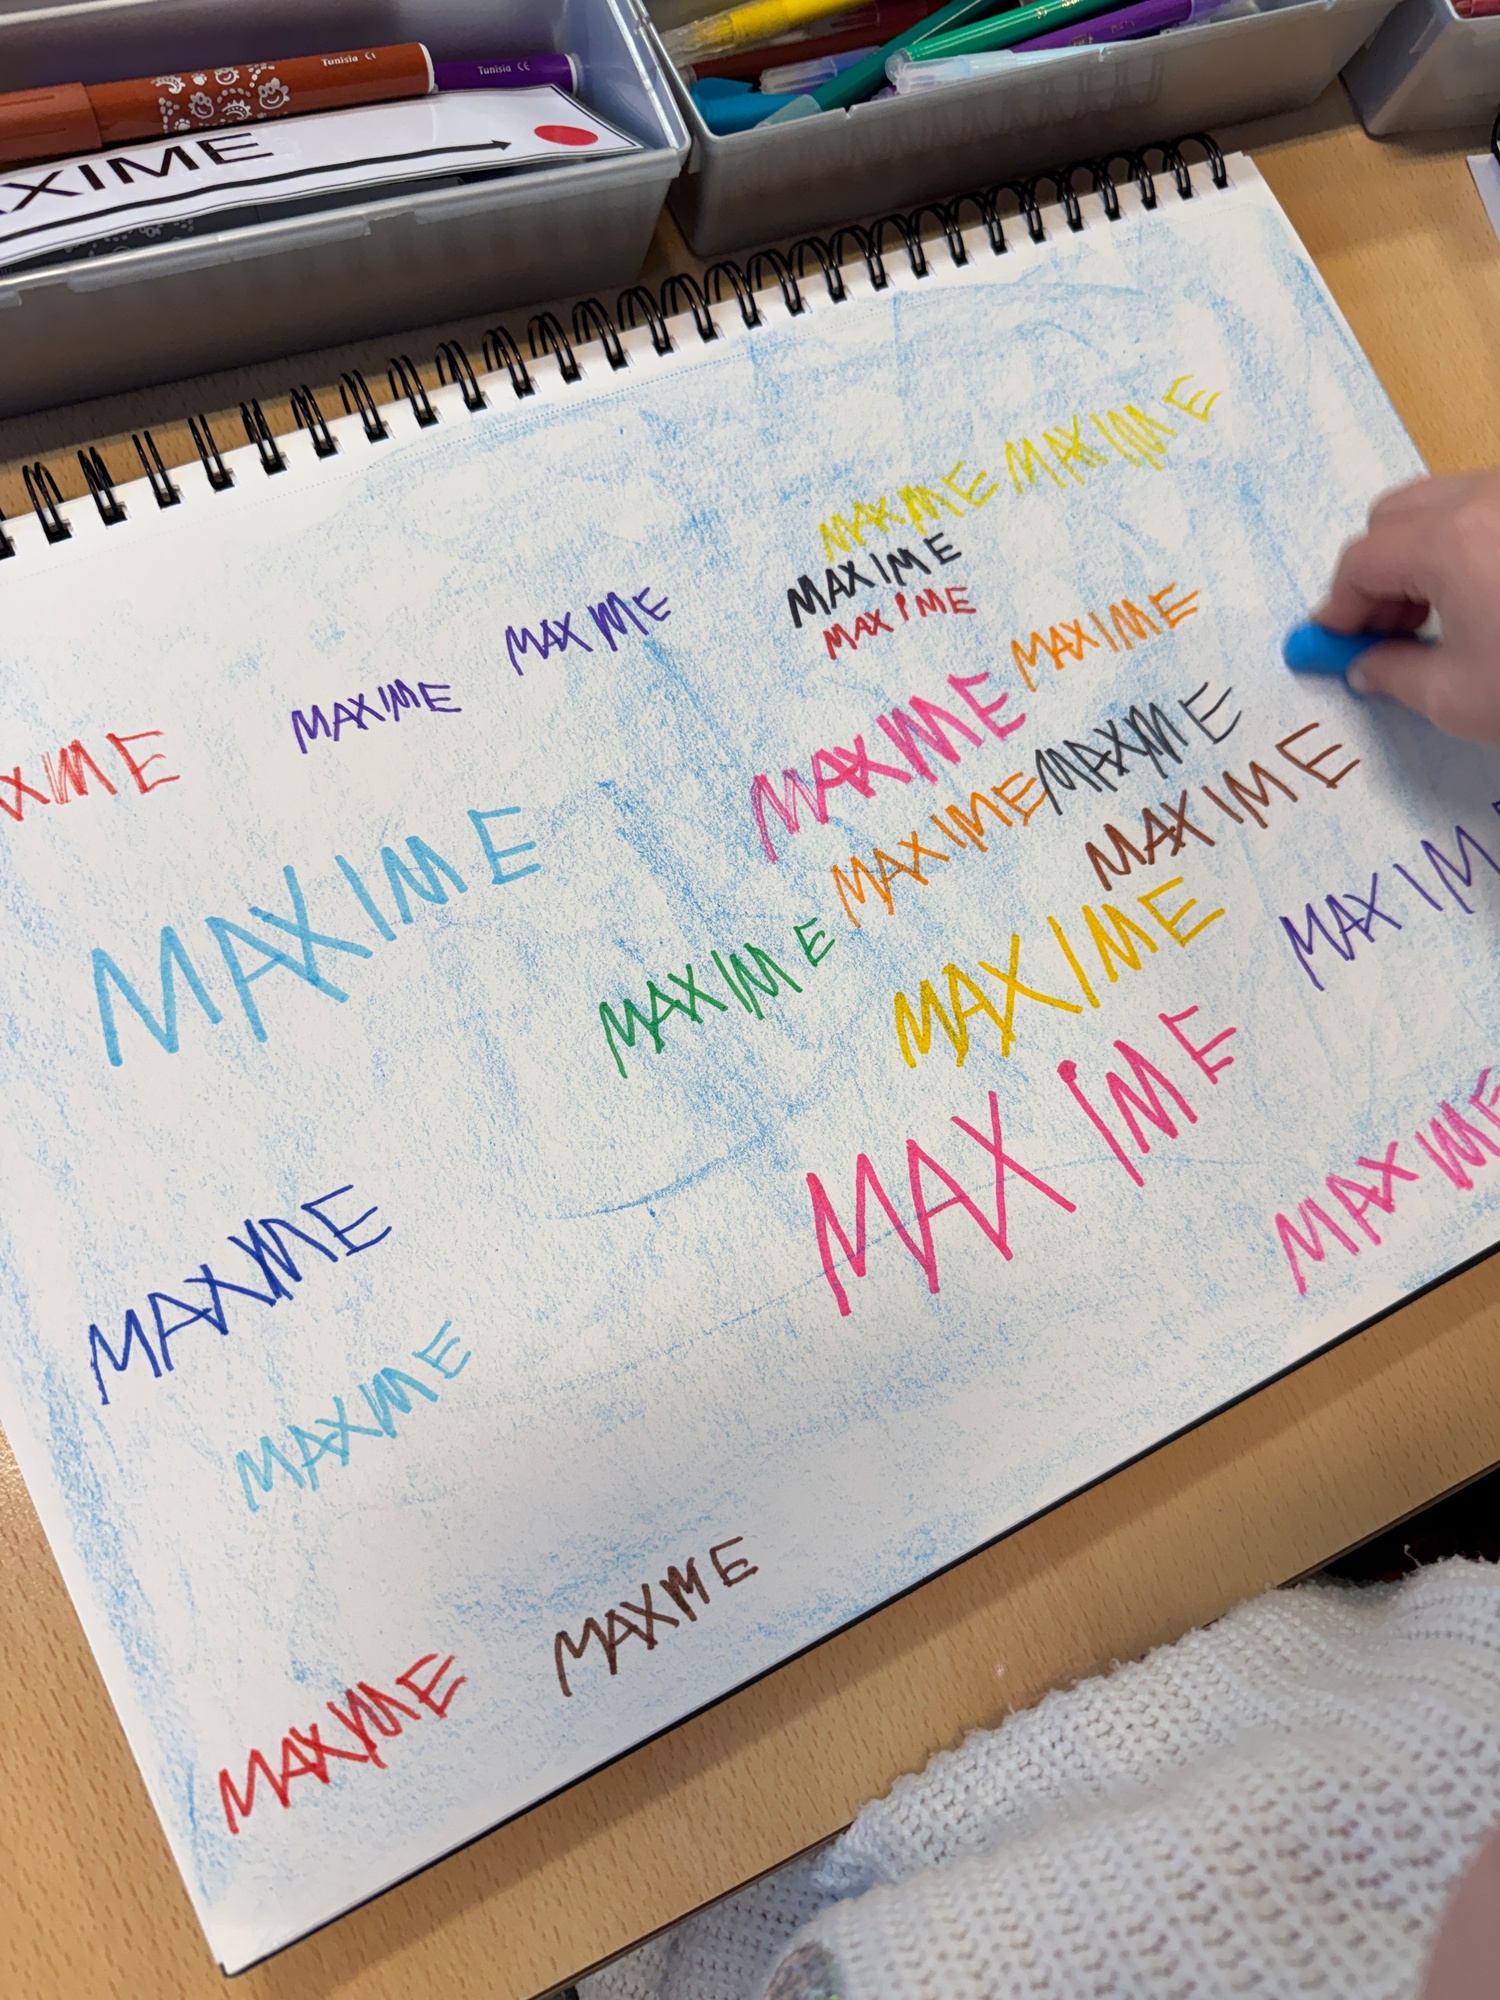 Tunisia CE
Tunisia CE
AXIME
MAXIME MAXIME
MAXIME
MAXIME
MAXIME
MAXIME
MAXIME
MAXIME
XIME
MAXIME
MAXIME
MAXIME
MAXIME
MAXIME
MAXIME
MAXIME
MAXIM
MAXIME
MAXIME
MAXIME
MAXIME
MAXIME
MAXIME